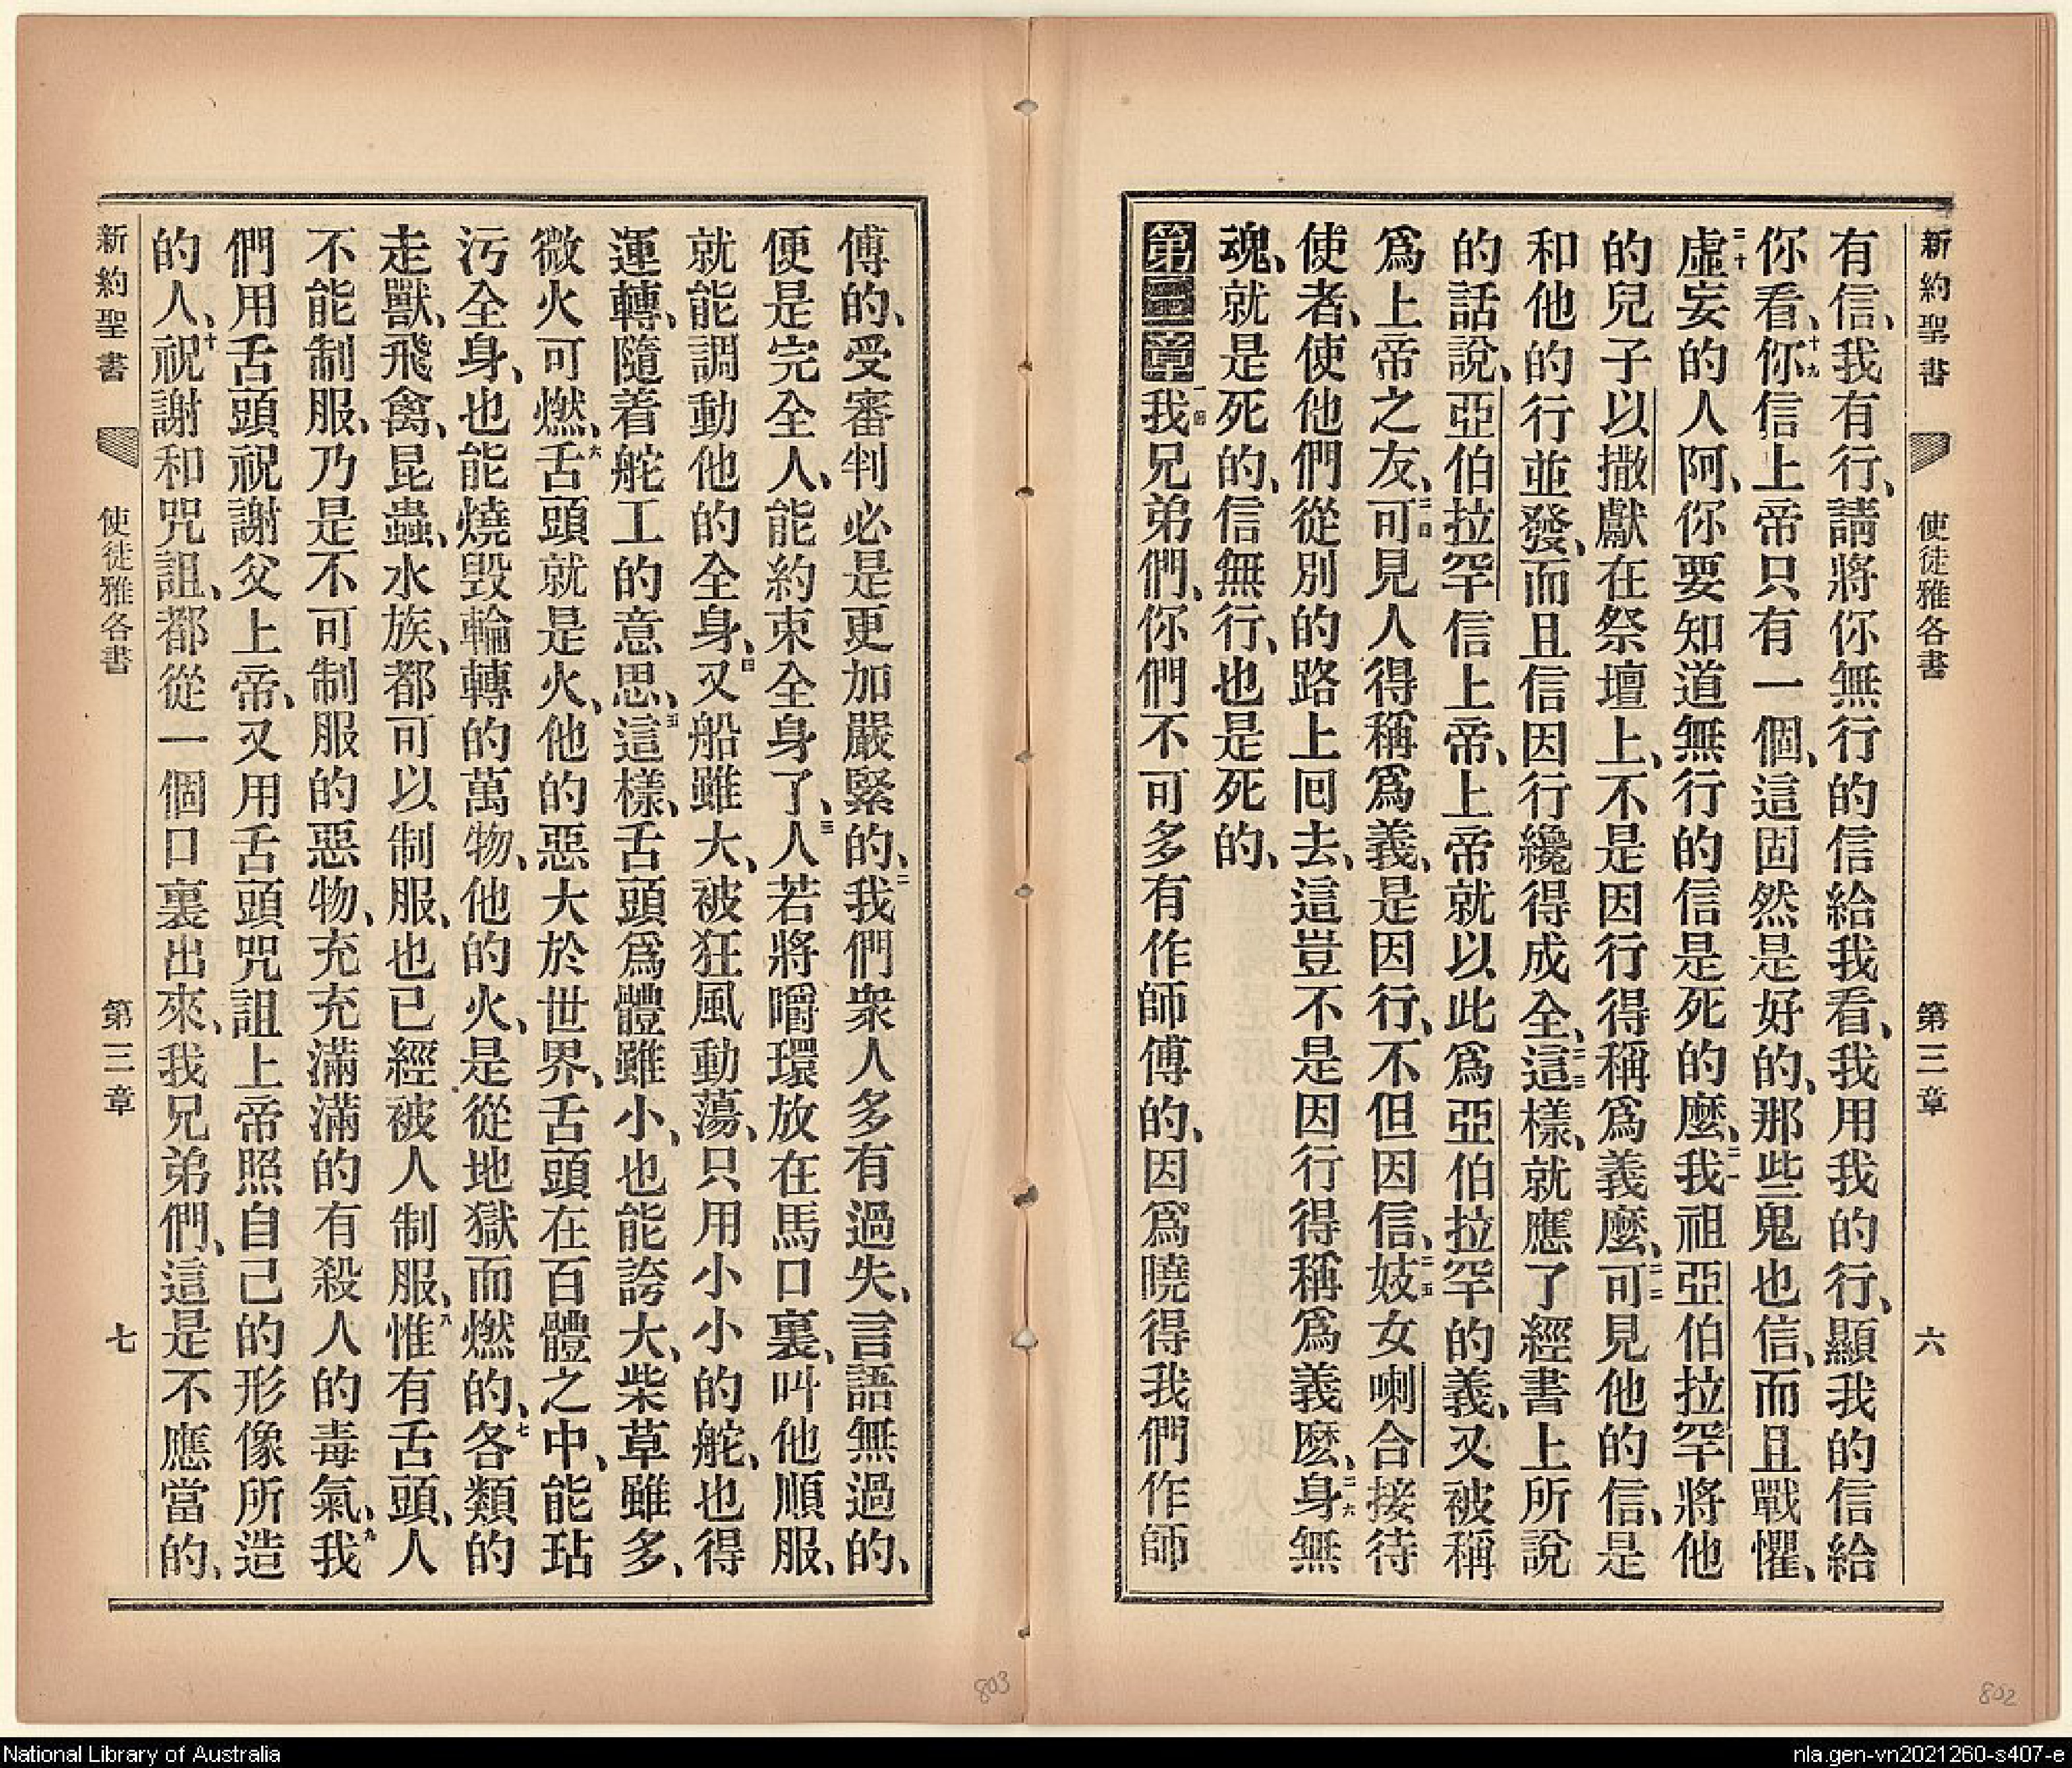 新約聖書 使徒雅各書 第三章 六
有信、我有行、請將你無行的信給我看、我用我的行、顯我的信給
你看、十九你信上帝只有一個、這固然是好的、那些鬼也信、而且戰懼、
二十虛妄的人阿、你要知道無行的信是死的麼、二一我祖亞伯拉罕將他
的兒子以撒獻在祭壇上、不是因行得稱爲義麼、二二可見他的信、是
和他的行並發、而且信因行纔得成全、二三這樣、就應了經書上所說
的話說、亞伯拉罕信上帝、上帝就以此爲亞伯拉罕的義、又被稱
爲上帝之友、二四可見人得稱爲義、是因行、不但因信、二五妓女喇合接待
使者、使他們從別的路上囘去、這豈不是因行得稱爲義麽、二六身無
魂、就是死的、信無行、也是死的、
第三章一節我兄弟們、你們不可多有作師傅的、因爲曉得我們作師
傅的、受審判必是更加嚴緊的、二我們衆人多有過失、言語無過的、
便是完全人、能約束全身了、三人若將嚼環放在馬口裏、叫他順服、
就能調動他的全身、四又船雖大、被狂風動蕩、只用小小的舵、也得
運轉、隨着舵工的意思、五這樣、舌頭爲體雖小、也能誇大、柴草雖多、
微火可燃、六舌頭就是火、他的惡大於世界、舌頭在百體之中、能玷
污全身、也能燒毀輪轉的萬物、他的火、是從地獄而燃的、七各類的
走獸、飛禽、昆蟲、水族、都可以制服、也已經被人制服、八惟有舌頭、人
不能制服、乃是不可制服的惡物、充充滿滿的有殺人的毒氣、九我
們用舌頭祝謝父上帝、又用舌頭咒詛上帝照自己的形像所造
的人、十祝謝和咒詛、都從一個口裏出來、我兄弟們、這是不應當的、
新約聖書 使徒雅各書 第三章 七
803
802
National Library of Australia
nla.gen-vn2021260-s407-e